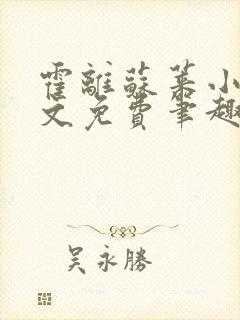 霍離蘇慕小
文免費筆趣
吴永勝